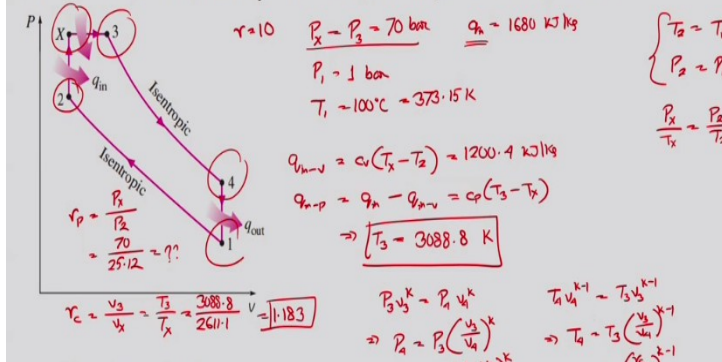 P
X
3
q_in
2
Isentropic
Isentropic
4
q_out
1
v
r = 10
P_x = P_3 = 70 bar
q_in = 1680 kJ/kg
P_1 = 1 bar
T_1 = 100°C = 373.15 K
q_in-v = c_v(T_x - T_2) = 1200.4 kJ/kg
q_in-p = q_in - q_in-v = c_p(T_3 - T_x)
⇒ T_3 = 3088.8 K
r_p = P_x/P_2
= 70/25.12 = ??
r_c = v_3/v_x = T_3/T_x = 3088.8/2611.1 = 1.183
P_3 v_3^k = P_4 v_4^k
⇒ P_4 = P_3 (v_3/v_4)^k
T_4 v_4^k-1 = T_3 v_3^k-1
⇒ T_4 = T_3 (v_3/v_4)^k-1
T_2 = T
P_2 = P
P_x/T_x = P_2/T